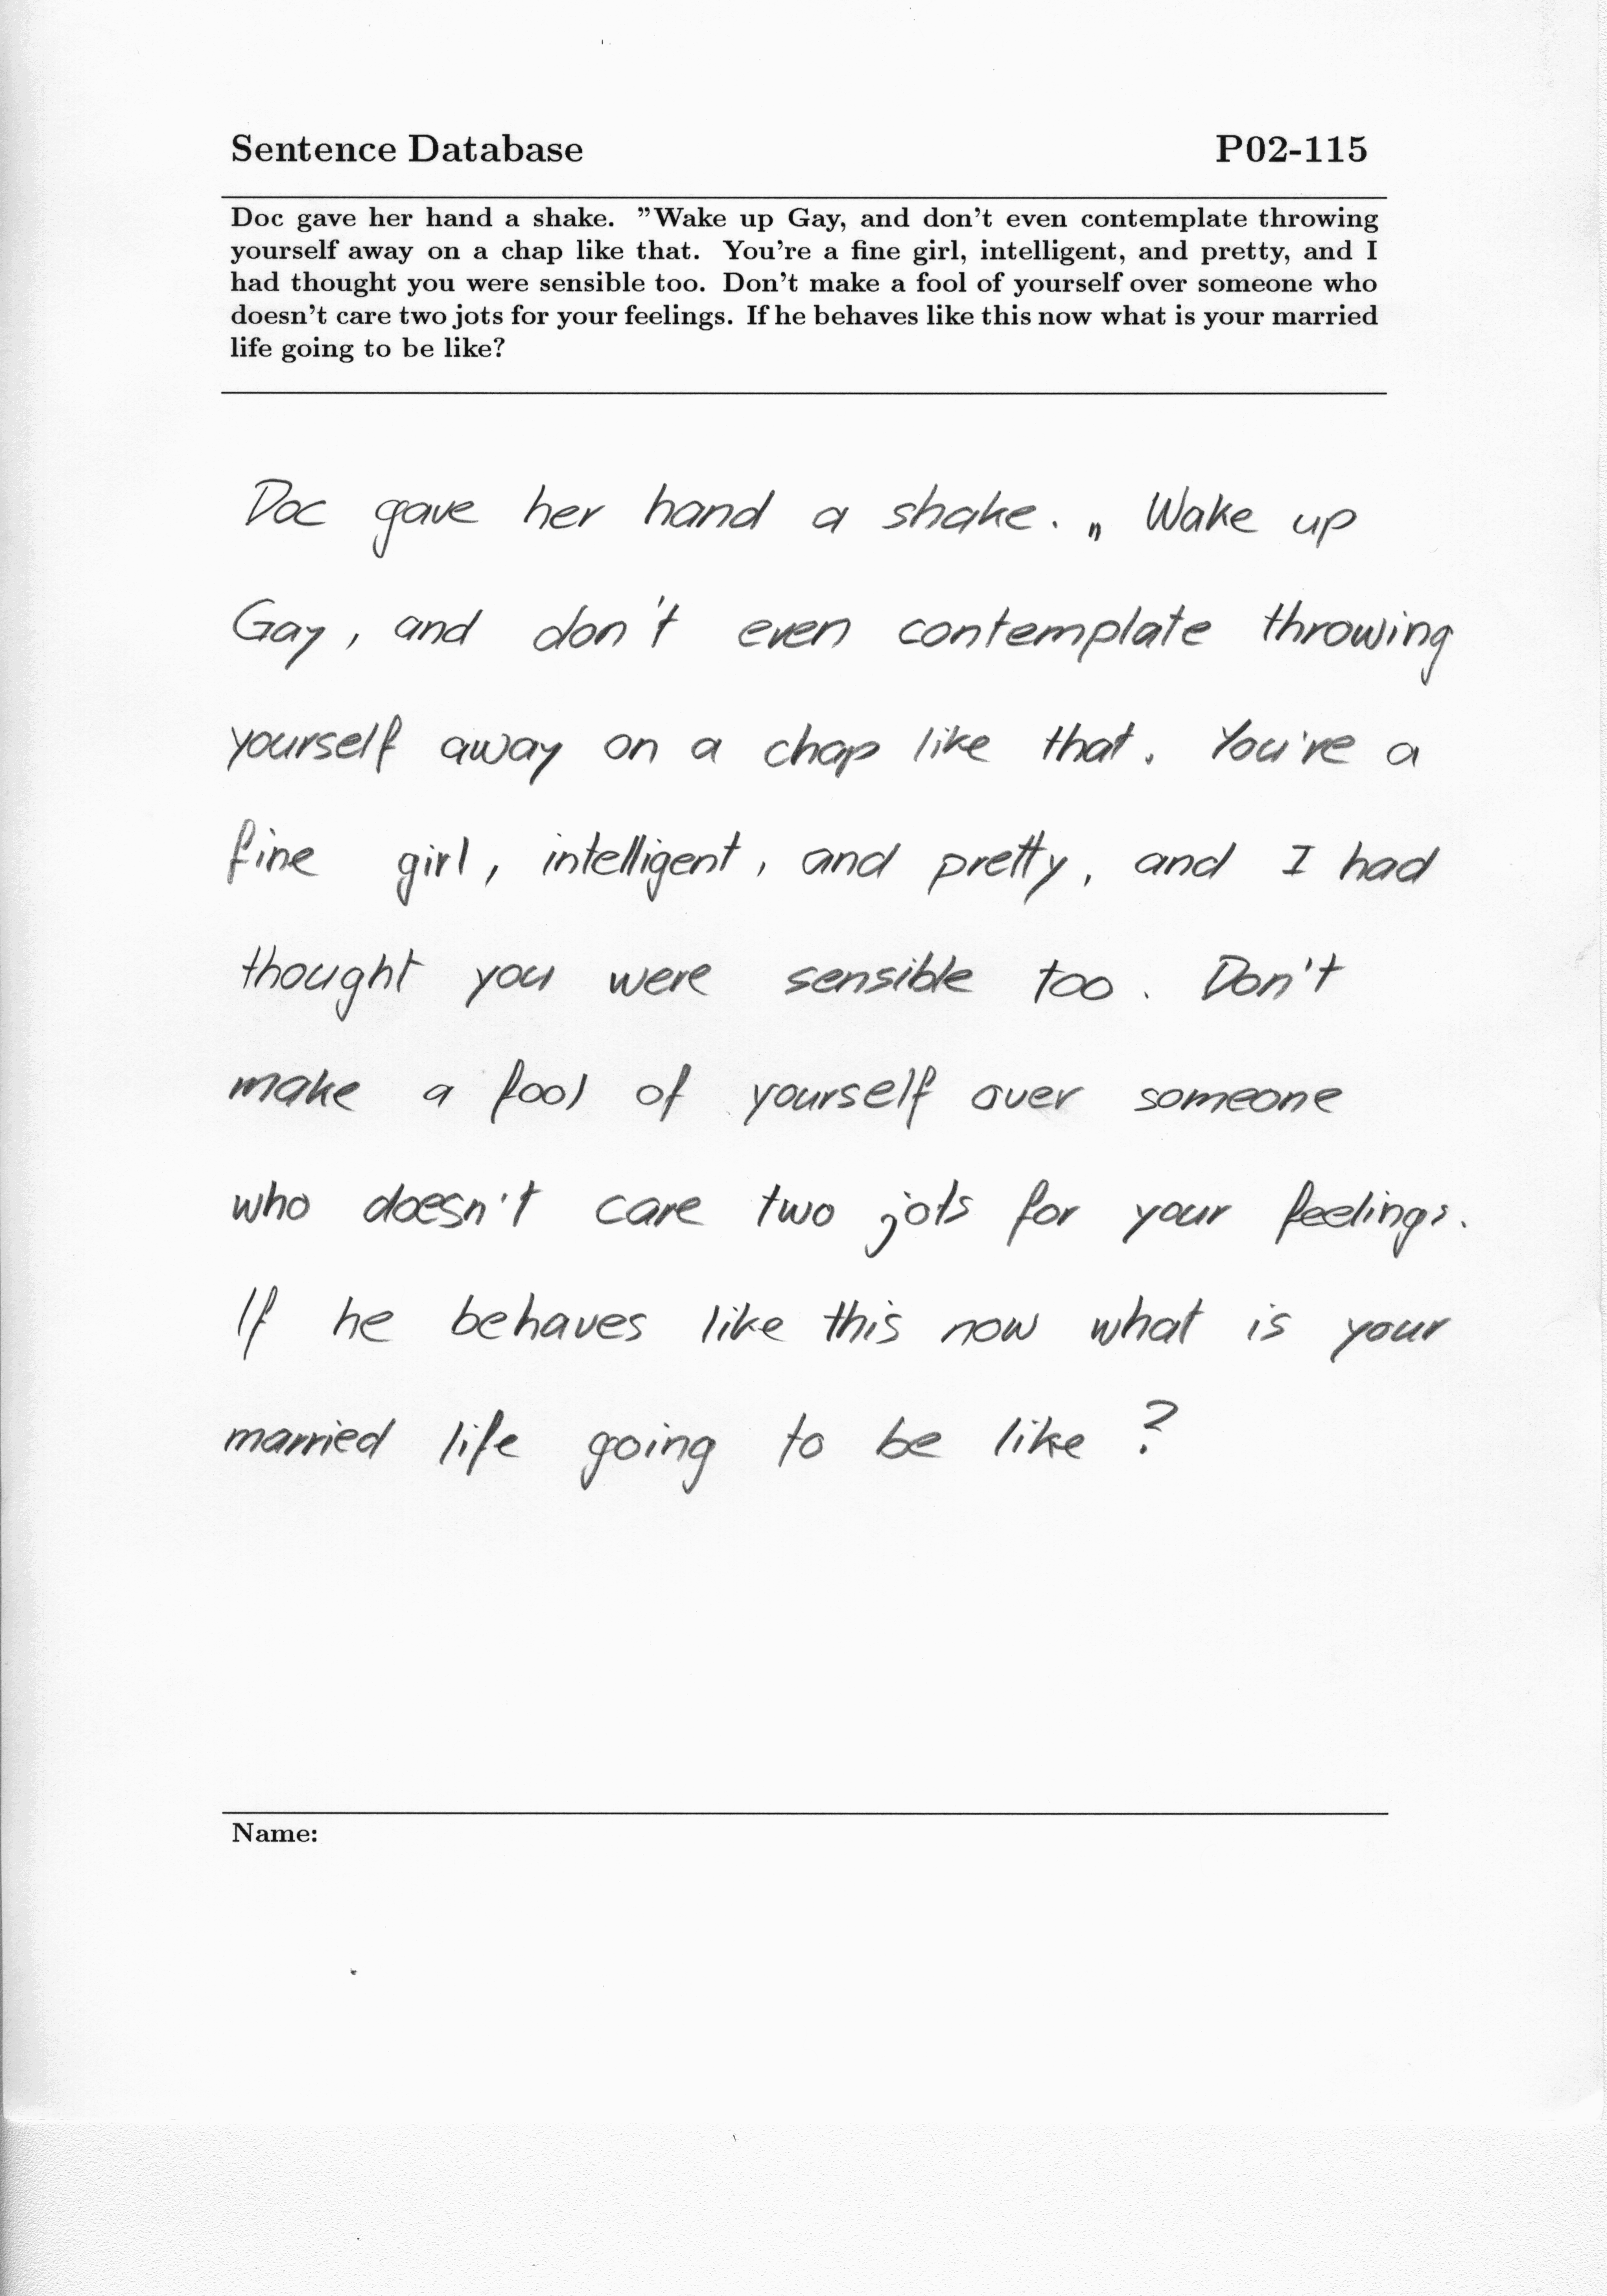 Sentence Database P02-115
Doc gave her hand a shake. ”Wake up Gay, and don’t even contemplate throwing
yourself away on a chap like that. You’re a fine girl, intelligent, and pretty, and I
had thought you were sensible too. Don’t make a fool of yourself over someone who
doesn’t care two jots for your feelings. If he behaves like this now what is your married
life going to be like?
Doc gave her hand a shake. „ Wake up
Gay, and don't even contemplate throwing
yourself away on a chap like that. You're a
fine girl, intelligent, and pretty, and I had
thought you were sensible too. Don't
make a fool of yourself over someone
who doesn't care two jots for your feelings.
If he behaves like this now what is your
married life going to be like ?
Name: